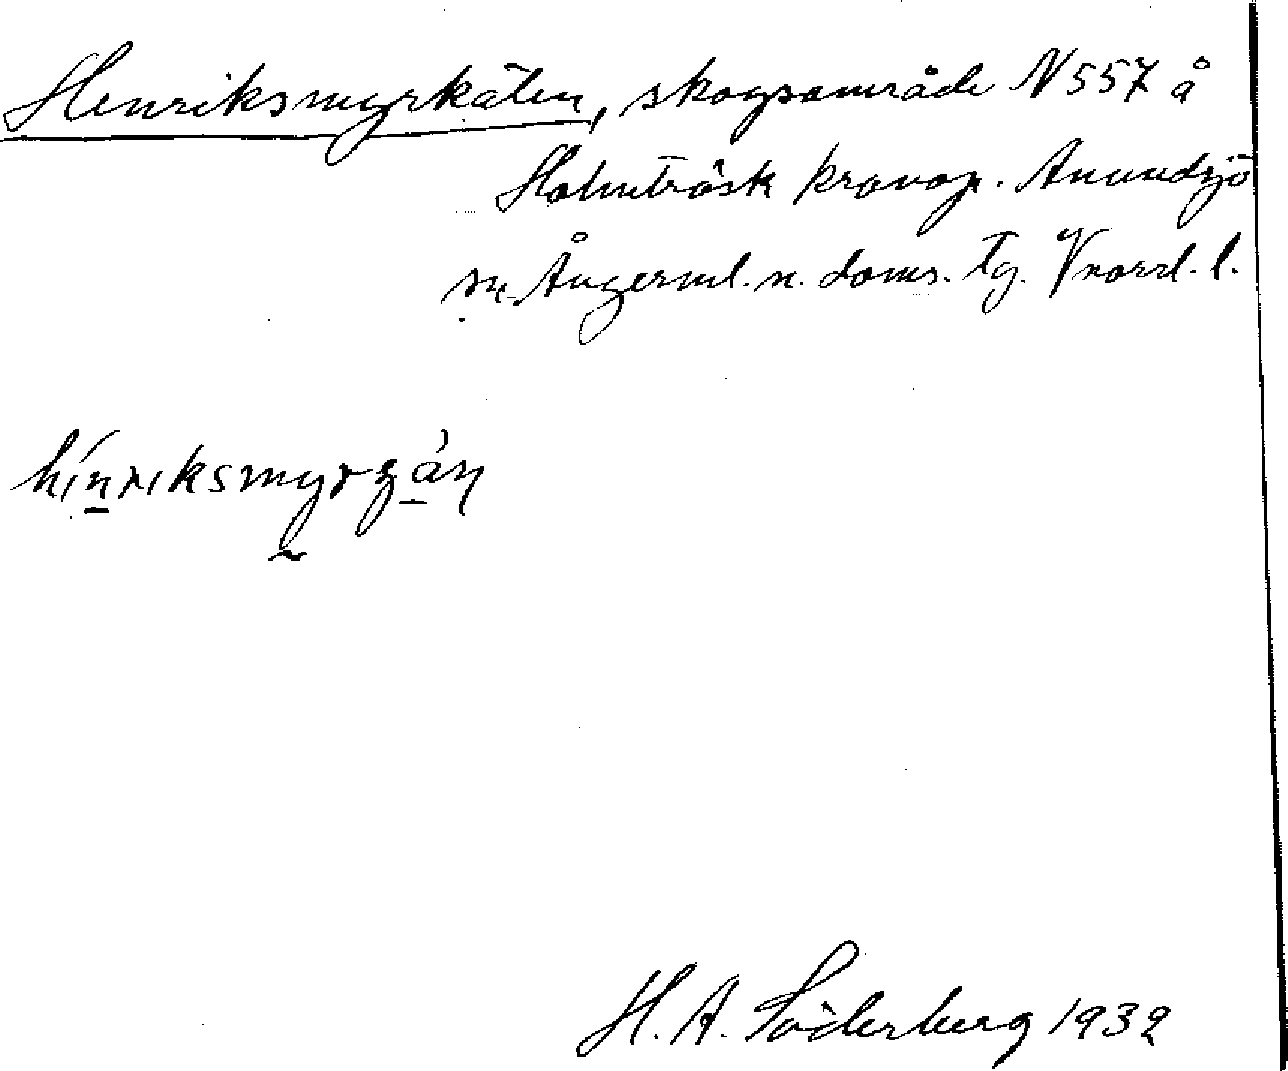 Henriksmyrkälen, skogsområde N 557 å
Holmträsk kronop. Anundsjö
sn. Ångerml. n. doms. tg. Vnorrl. l.
H. A. Söderberg 1932